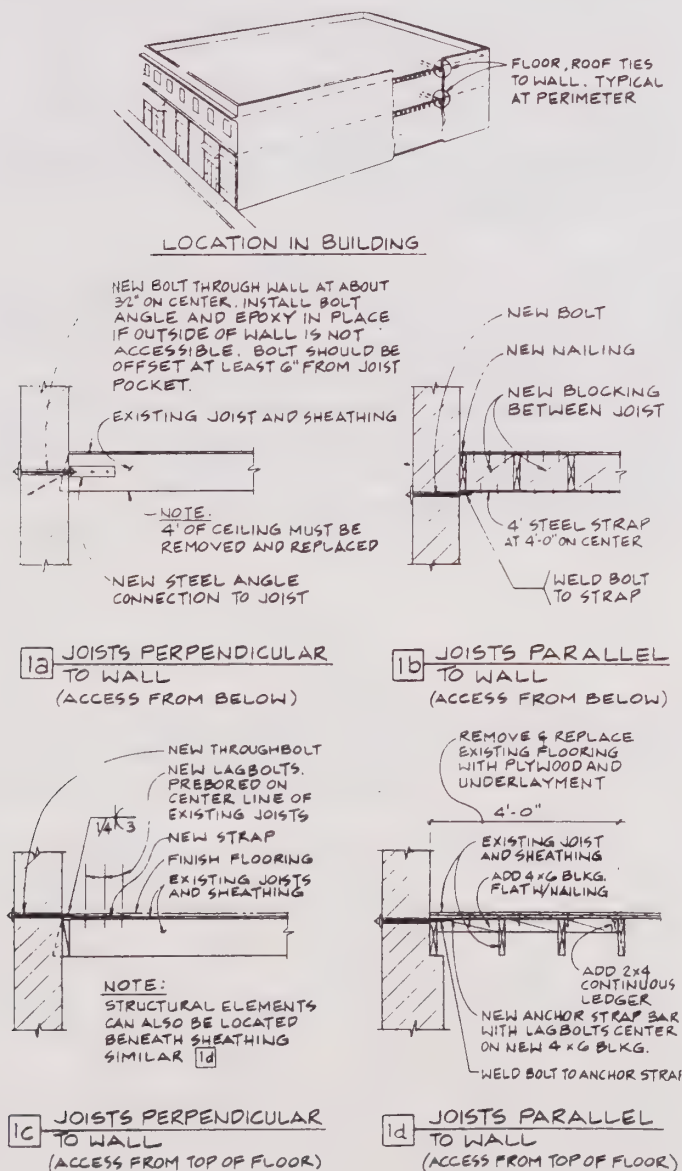 FLOOR, ROOF TIES
TO WALL. TYPICAL
AT PERIMETER
LOCATION IN BUILDING
NEW BOLT THROUGH WALL AT ABOUT
32" ON CENTER. INSTALL BOLT
ANGLE AND EPOXY IN PLACE
IF OUTSIDE OF WALL IS NOT
ACCESSIBLE. BOLT SHOULD BE
OFFSET AT LEAST 6" FROM JOIST
POCKET.
EXISTING JOIST AND SHEATHING
NOTE:
4' OF CEILING MUST BE
REMOVED AND REPLACED
NEW STEEL ANGLE
CONNECTION TO JOIST
1a JOISTS PERPENDICULAR
TO WALL
(ACCESS FROM BELOW)
NEW BOLT
NEW NAILING
NEW BLOCKING
BETWEEN JOIST
4' STEEL STRAP
AT 4'-0" ON CENTER
WELD BOLT
TO STRAP
1b JOISTS PARALLEL
TO WALL
(ACCESS FROM BELOW)
NEW THROUGHBOLT
NEW LAGBOLTS.
PREBORED ON
CENTER LINE OF
EXISTING JOISTS
1/4 3
NEW STRAP
FINISH FLOORING
EXISTING JOISTS
AND SHEATHING
NOTE:
STRUCTURAL ELEMENTS
CAN ALSO BE LOCATED
BENEATH SHEATHING
SIMILAR 1d
1c JOISTS PERPENDICULAR
TO WALL
(ACCESS FROM TOP OF FLOOR)
REMOVE & REPLACE
EXISTING FLOORING
WITH PLYWOOD AND
UNDERLAYMENT
4'-0"
EXISTING JOIST
AND SHEATHING
ADD 4x6 BLKG.
FLAT W/NAILING
ADD 2x4
CONTINUOUS
LEDGER
NEW ANCHOR STRAP BAR
WITH LAGBOLTS CENTER
ON NEW 4x6 BLKG.
WELD BOLT TO ANCHOR STRAP
1d JOISTS PARALLEL
TO WALL
(ACCESS FROM TOP OF FLOOR)